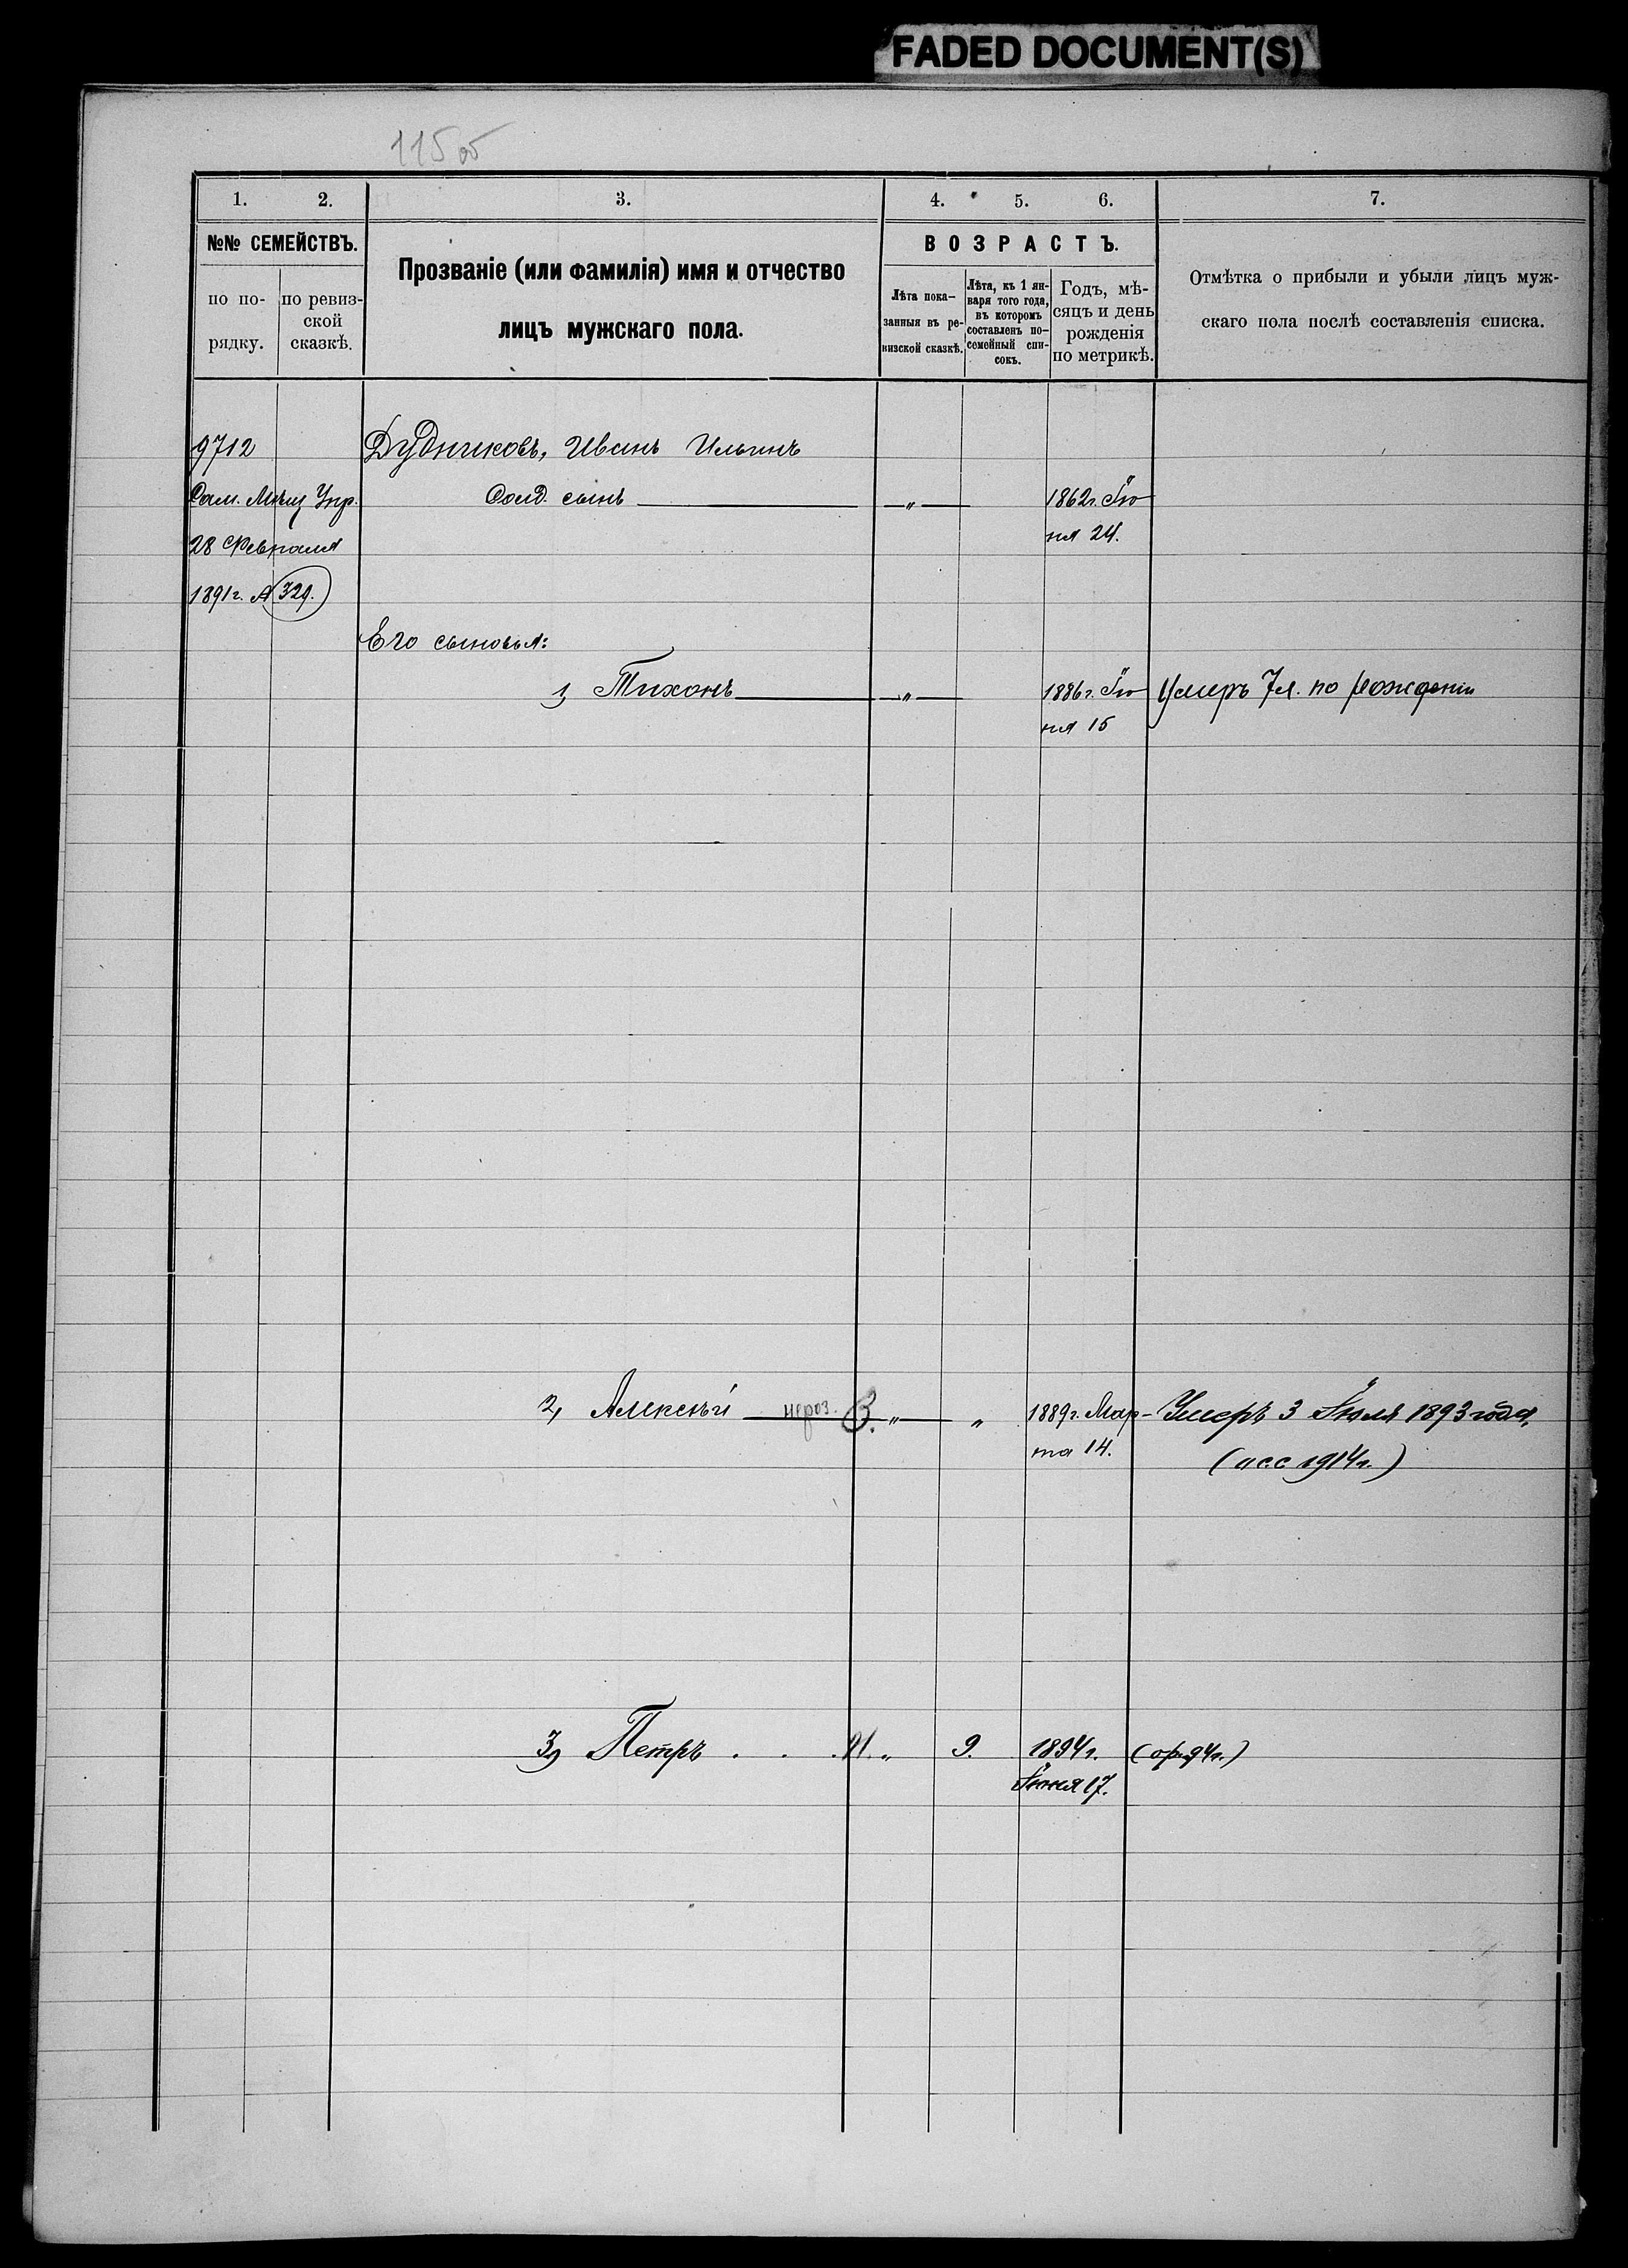 FADED DOCUMENT(S)
115 об
1. 2. 3. 4. 5. 6. 7.
№№ СЕМЕЙСТВЪ.
по по-
рядку.
по ревиз-
ской
сказкѣ.
Прозваніе (или фамилія) имя и отчество
лицъ мужскаго пола.
ВОЗРАСТЪ.
Лѣта пока-
занныя въ ре-
визской сказкѣ.
Лѣта, къ 1 ян-
варя того года,
въ которомъ
составленъ по-
семейный спи-
сокъ.
Годъ, мѣ-
сяцъ и день
рожденія
по метрикѣ.
Отмѣтка о прибыли и убыли лицъ муж-
скаго пола послѣ составленія списка.
9712 Дудниковъ, Иванъ Ильинъ
Сам. Мѣщ Упр. Солд. сынъ — „ — 1862г. Ію
28 Февраля ня 24.
1891г. № 329.
Его сыновья:
1, Тихонъ — „ — 1886г. Ію Умеръ 7 л. по рожденіи
ня 15
2, Алексѣй — „ — „ 1889г. Мар- Умеръ 3 Іюля 1893 года.
та 14. (исс 1914г.)
3, Петръ . . . „ 9. 1894г.
Іюня 17.